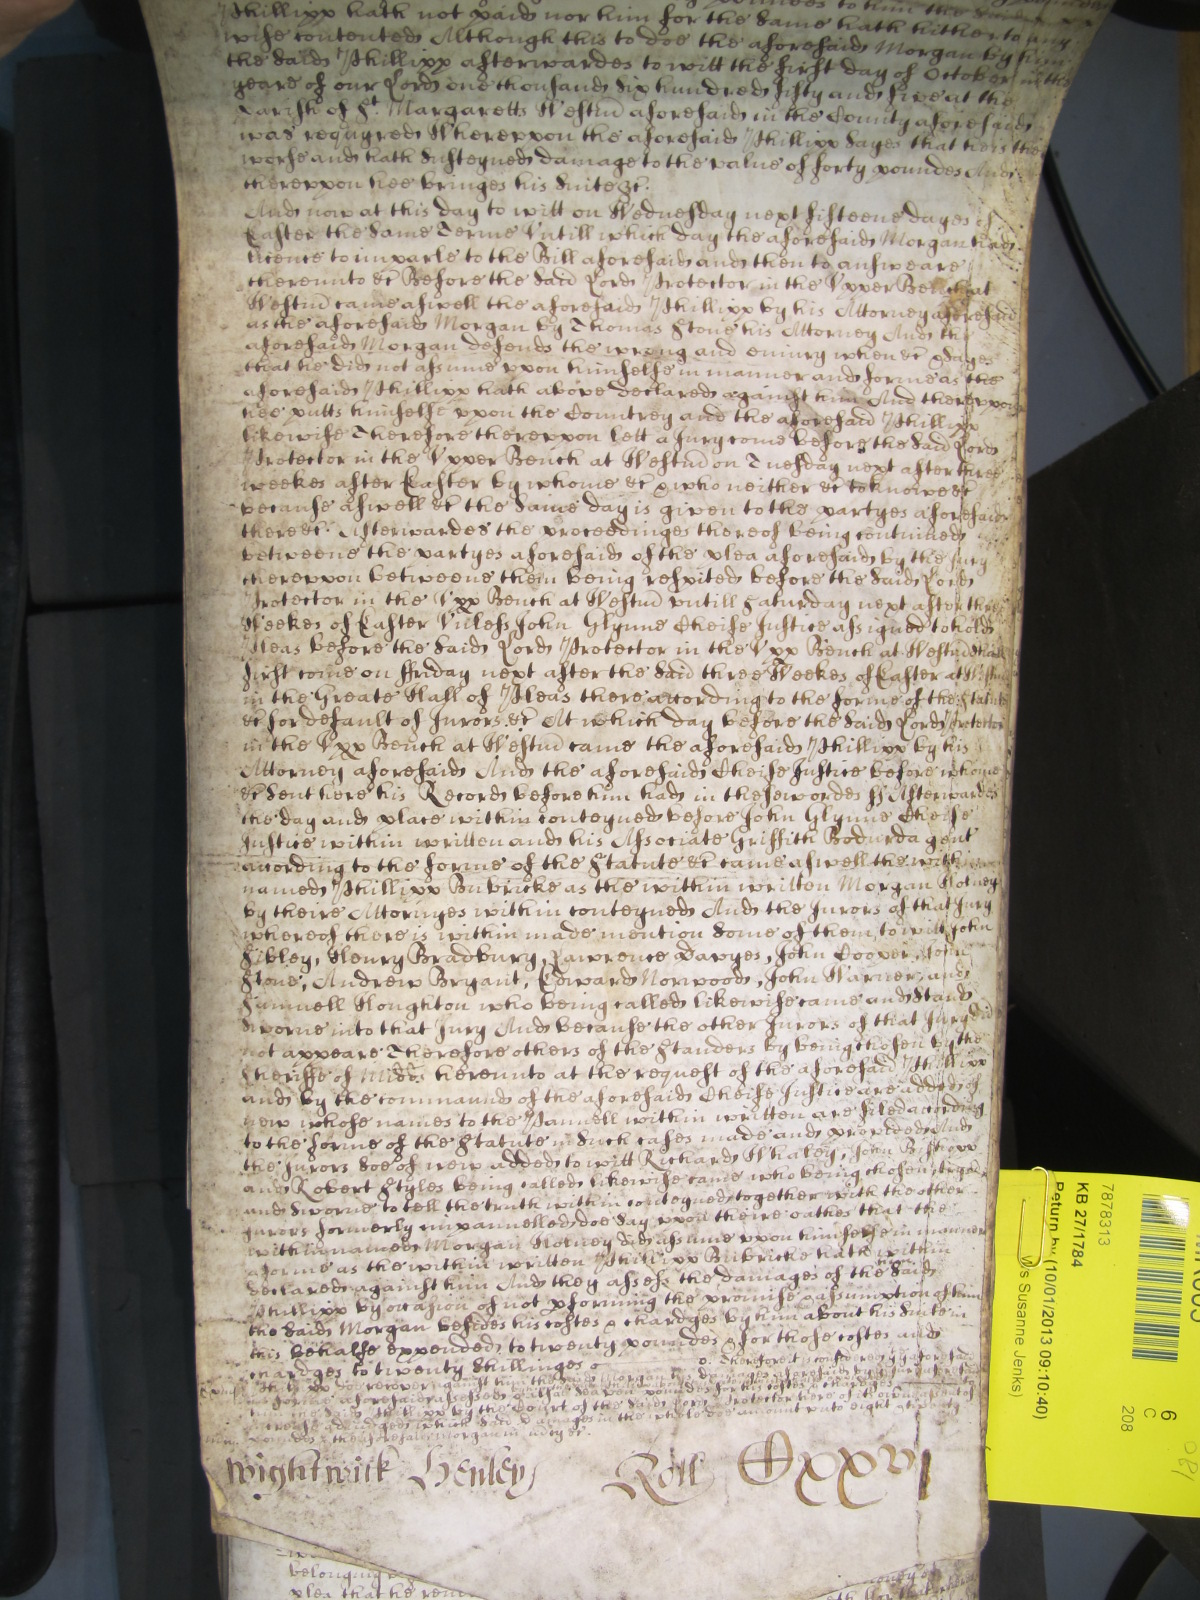 Phillipp hath not paid nor him for the same hath hitherto any
wise contented Although this to doe the aforesaid Morgan by him
the said Phillipp afterwardes to witt the first day of October in the
yeare of our Lord one thousand six hundred fifty and five at the
Parish of St Margaretts Westmr aforesaid in the County aforesaid
was requyred Whereuppon the aforesaid Phillipp sayes that hee is the
worse and hath susteyned damage to the value of forty poundes And
thereuppon hee bringes his suite &c.
And now at this day to witt on Wednesday next fifteene dayes of
Easter the same Terme Untill which day the aforesaid Morgan had
licence to imparle to the Bill aforesaid and then to answeare
thereunto &c Before the said Lord Protector in the Upper Bench at
Westmr came aswell the aforesaid Phillipp by his Attorney aforesaid
as the aforesaid Morgan by Thomas Stone his Attorney And the
aforesaid Morgan defends the wrong and iniury when &c & sayes
that he did not assume uppon himselfe in manner and forme as the
aforesaid Phillipp hath above declared against him And thereuppon
hee putts himselfe uppon the Countrey and the aforesaid Phillipp
likewise Therefore thereuppon lett a Jury come before the said Lord
Protector in the Upper Bench at Westmr on Tuesday next after three
weekes after Easter by whome &c & who neither &c to knowe &c
because aswell &c the same day is given to the partyes aforesaid
there &c. Afterwardes the proceedinges thereof being continued
betweene the partyes aforesaid of the plea aforesaid by the Jury
thereuppon betweene them being respited before the said Lord
Protector in the Upp Bench at Westmr untill Saturday next after three
Weekes of Easter Unless John Glynne Cheife Justice assigned to hold
Pleas before the said Lord Protector in the Upp Bench at Westmr shall
first come on ffriday next after the said three Weekes of Easter at Westmr
in the Greate Hall of Pleas there according to the forme of the Statute
&c for default of Jurors &c At which day before the said Lord Protector
in the Upp Bench at Westmr came the aforesaid Phillipp by his
Attorney aforesaid And the aforesaid Cheife Justice before whome
&c sent here his Record before him had in these wordes ss Afterwardes
the day and place within conteyned before John Glynne Cheife
Justice within written and his Associate Griffith Bodurda gent
according to the forme of the Statute &c came aswell the within
named Phillipp Bubricke as the within written Morgan Hotney
by theire Attornyes within conteyned And the Jurors of that Jury
whereof there is within made mention some of them to witt John
Sibley, Henry Bradbury, Lawrence Pawyes, John Cooper, John
Stone, Andrew Bryant, Edward Norwood, John Warner, and
Samuell Houghton who being called likewise came and stand
sworne into that Jury And because the other Jurors of that Jury did
not appeare Therefore others of the standers by being chosen by the
Sheriffe of Midd hereunto at the request of the aforesaid Phillipp
and by the commaund of the aforesaid Cheife Justice are added of
new whose names to the Pannell within written are filed according
to the forme of the Statute in such cases made and provided And
the Jurors soe of new added to witt Richard Whaley, John Bishopp
and Robert Styles being called likewise came who being chosen, tryed
and sworne to tell the truth within conteyned together with the other
Jurors formerly impannelled doe say uppon theire oathes that the
within named Morgan Hotney did assume uppon himselfe in manner
& forme as the within written Phillipp Bubricke hath within
declared against him And they assess the damages of the said
Phillipp by occasion of not pforming the promise & assumption of him
the said Morgan besides his costes & chardges by him about his suite in
this behalfe expended to twenty poundes & for those costes and
chardges to twenty shillinges
Wightwick Henley Roll Cxxvi
7878313
KB 27/1784
Return by (10/01/2013 09:10:40)
Ms Susanne Jenks)
6
C
208